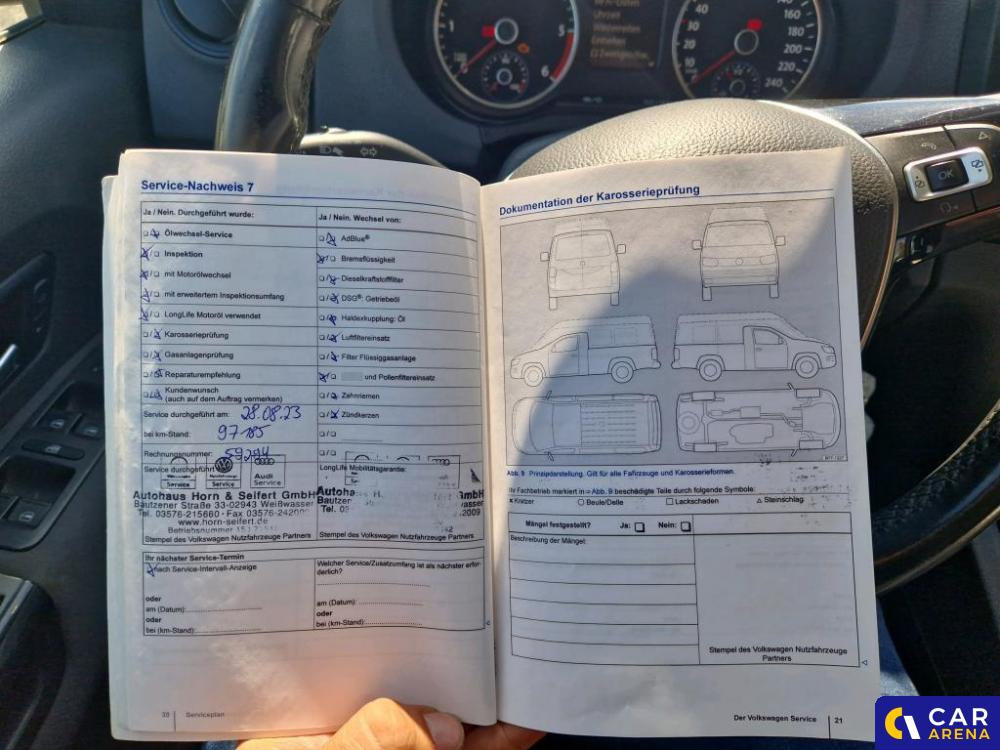 1
5
6
Uhrzeit
Winterreifen
Einheiten
40
30
20
10
0
140
160
180
200
220
240
OK
Service-Nachweis 7
Ja / Nein. Durchgeführt wurde:
Ölwechsel-Service
Inspektion
mit Motorölwechsel
mit erweitertem Inspektionsumfang
LongLife Motoröl verwendet
Karosserieprüfung
Gasanlagenprüfung
Reparaturempfehlung
Kundenwunsch
(auch auf dem Auftrag vermerken)
Service durchgeführt am: 28.08.23
bei km-Stand: 97185
Rechnungsnummer: 59294
Service durchgeführt
Service
Service
Audi
Service
Autohaus Horn & Seifert GmbH
Bautzener Straße 33-02943 Weißwasser
Tel. 03576-215660 - Fax 03576-242009
www.horn-seifert.de
Betriebsnummer
Stempel des Volkswagen Nutzfahrzeuge Partners
Ja / Nein. Wechsel von:
AdBlue®
Bremsflüssigkeit
Dieselkraftstofffilter
DSG®: Getriebeöl
Haldexkupplung: Öl
Luftfiltereinsatz
Filter Flüssiggasanlage
und Pollenfiltereinsatz
Zahnriemen
Zündkerzen
LongLife Mobilitätsgarantie:
Stempel des Volkswagen Nutzfahrzeuge Partners
Ihr nächster Service-Termin
nach Service-Intervall-Anzeige
oder
am (Datum):
oder
bei (km-Stand):
Welcher Service/Zusatzumfang ist als nächster erfor-
derlich?
am (Datum):
oder
bei (km-Stand):
Serviceplan
Dokumentation der Karosserieprüfung
Abb. 9 Prinzipdarstellung. Gilt für alle Fahrzeuge und Karosserieformen.
Ihr Fachbetrieb markiert in ⇒ Abb. 9 beschädigte Teile durch folgende Symbole:
x Kratzer ○ Beule/Delle □ Lackschaden △ Steinschlag
Mängel festgestellt? Ja: Nein:
Beschreibung der Mängel:
Stempel des Volkswagen Nutzfahrzeuge
Partners
Der Volkswagen Service 21
CAR
ARENA